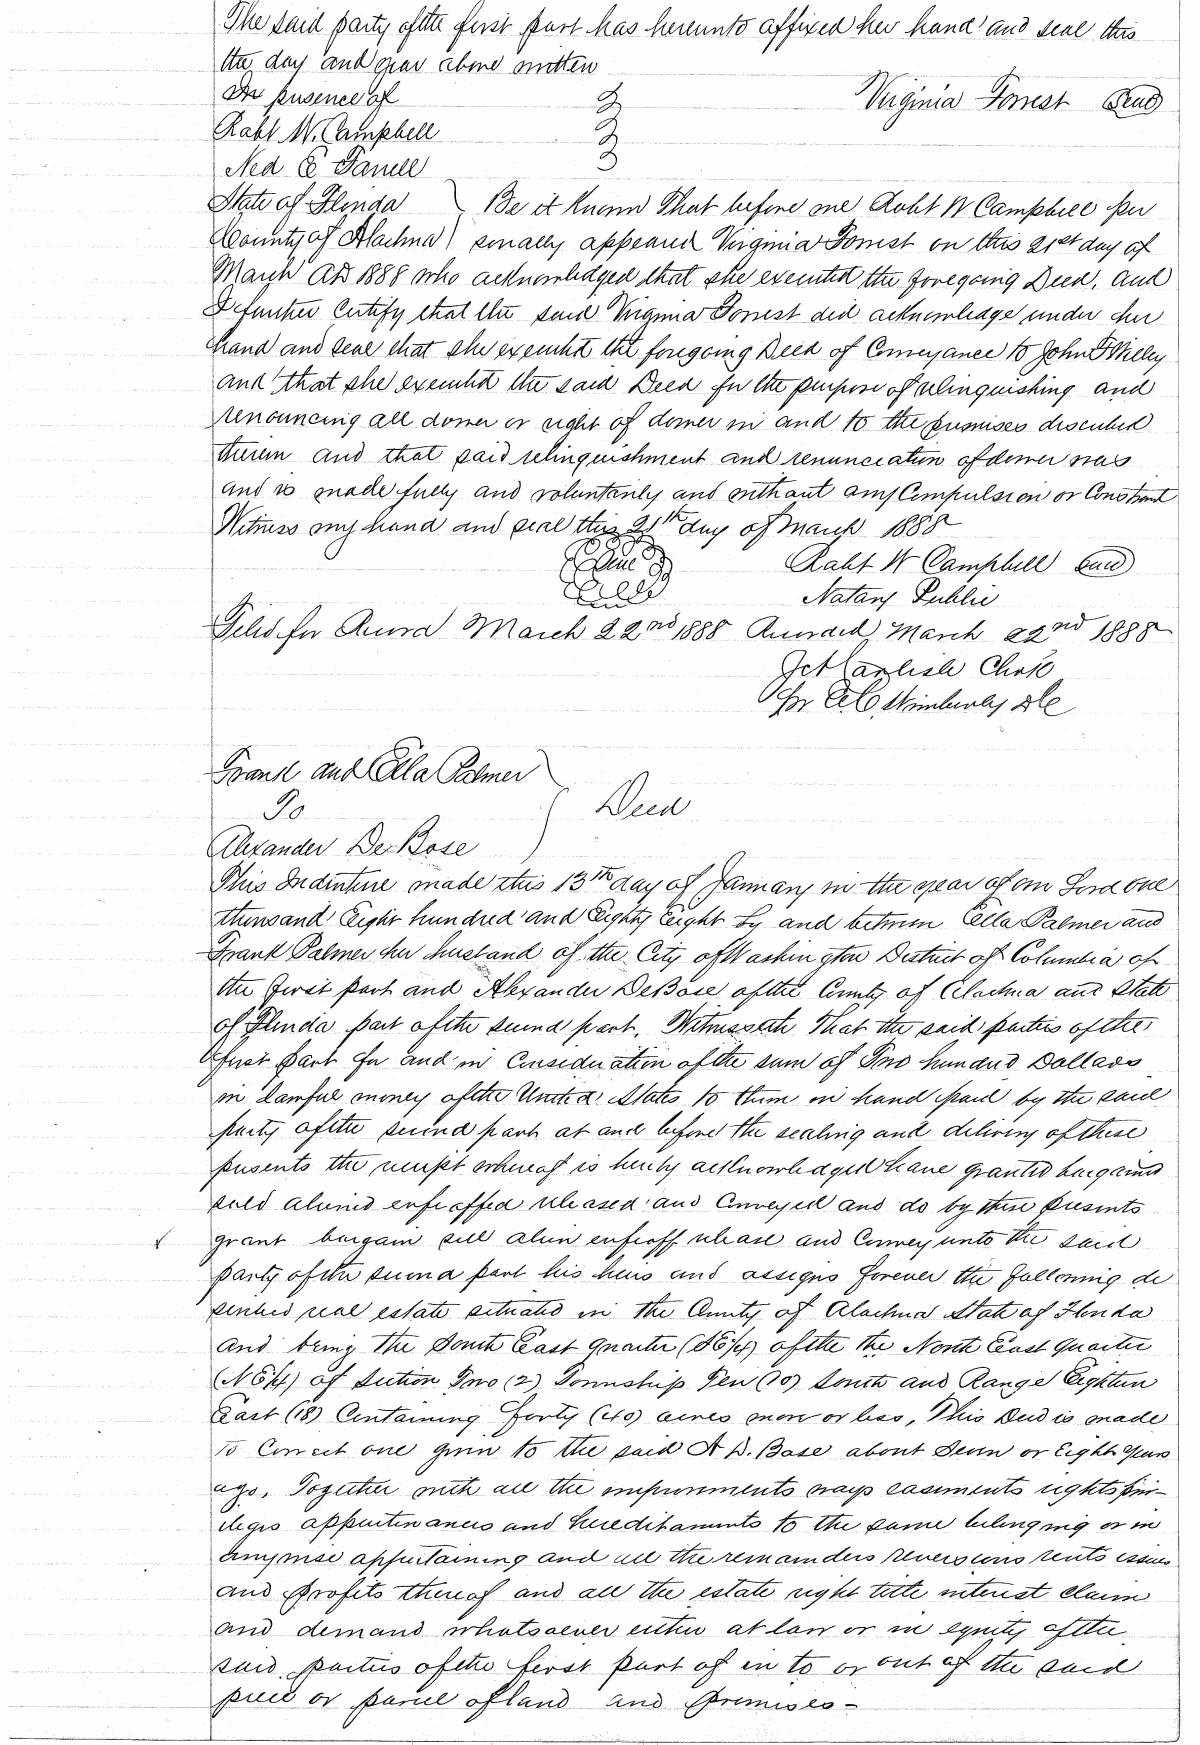 The said party of the first part has hereunto affixed her hand and seal this
the day and year above written
In presence of
Virginia Forrest Seal
Robt W. Campbell
Ned E
State of Florida } Be it Known That before me Robt W Campbell per
County of Alachua } sonally appeared Virginia Forrest on this 21st day of
March AD 1888 who acknowledged that she executed the foregoing Deed, and
I further Certify that the said Virginia Forrest did acknowledge under her
hand and seal that she executed the foregoing Deed of Conveyance to John F Willey
and that she executed the said Deed for the purpose of relinquishing and
renouncing all dower or right of dower in and to the premises described
therein and that said relinquishment and renunciation of dower was
and is made freely and voluntarily and without any Compulsion or Constraint
Witness my hand and seal this 21th day of March 1888
Seal
Robt W Campbell Seal
Notary Public
Filed for Record March 22nd 1888 Recorded March 22nd 1888
Carlisle Clerk
Per Wimberly DC
Frank and Ella Palmer
To } Deed
Alexander De Bose
This Indenture made this 13th day of January in the year of our Lord one
thousand Eight hundred and Eighty Eight by and between Ella Palmer and
Frank Palmer her husband of the City of Washington District of Columbia of
the first part and Alexander DeBose of the County of Alachua and State
of Florida part of the second part. Witnesseth That the said parties of the
first part for and in Consideration of the sum of Two hundred Dollars
in lawful money of the United States to them in hand paid by the said
party of the second part at and before the sealing and delivery of these
presents the receipt whereof is hereby acknowledged have granted bargained
sold aliened enfeoffed released and Conveyed and do by these presents
grant bargain sell alien enfeoff release and Convey unto the said
party of the second part his heirs and assigns forever the following de
scribed real estate situated in the County of Alachua State of Florida
and being the South East quarter (SE¼) of the the North East quarter
(NE¼) of Section Two (2) Township Ten (10) South and Range Eighteen
East (18) Containing forty (40) acres more or less, This Deed is made
to Correct one given to the said A D. Bose about Seven or Eight Years
ago. Together with all the improvements ways easments rights priv-
ileges appurtinances and hereditaments to the same belonging or in
anywise appertaining and all the remainders reversions rents issues
and profits thereof and all the estate right title interest claim
and demand whatsoever either at law or in equity of the
said parties of the first part of in to or out of the said
piece or parcel of land and premises-